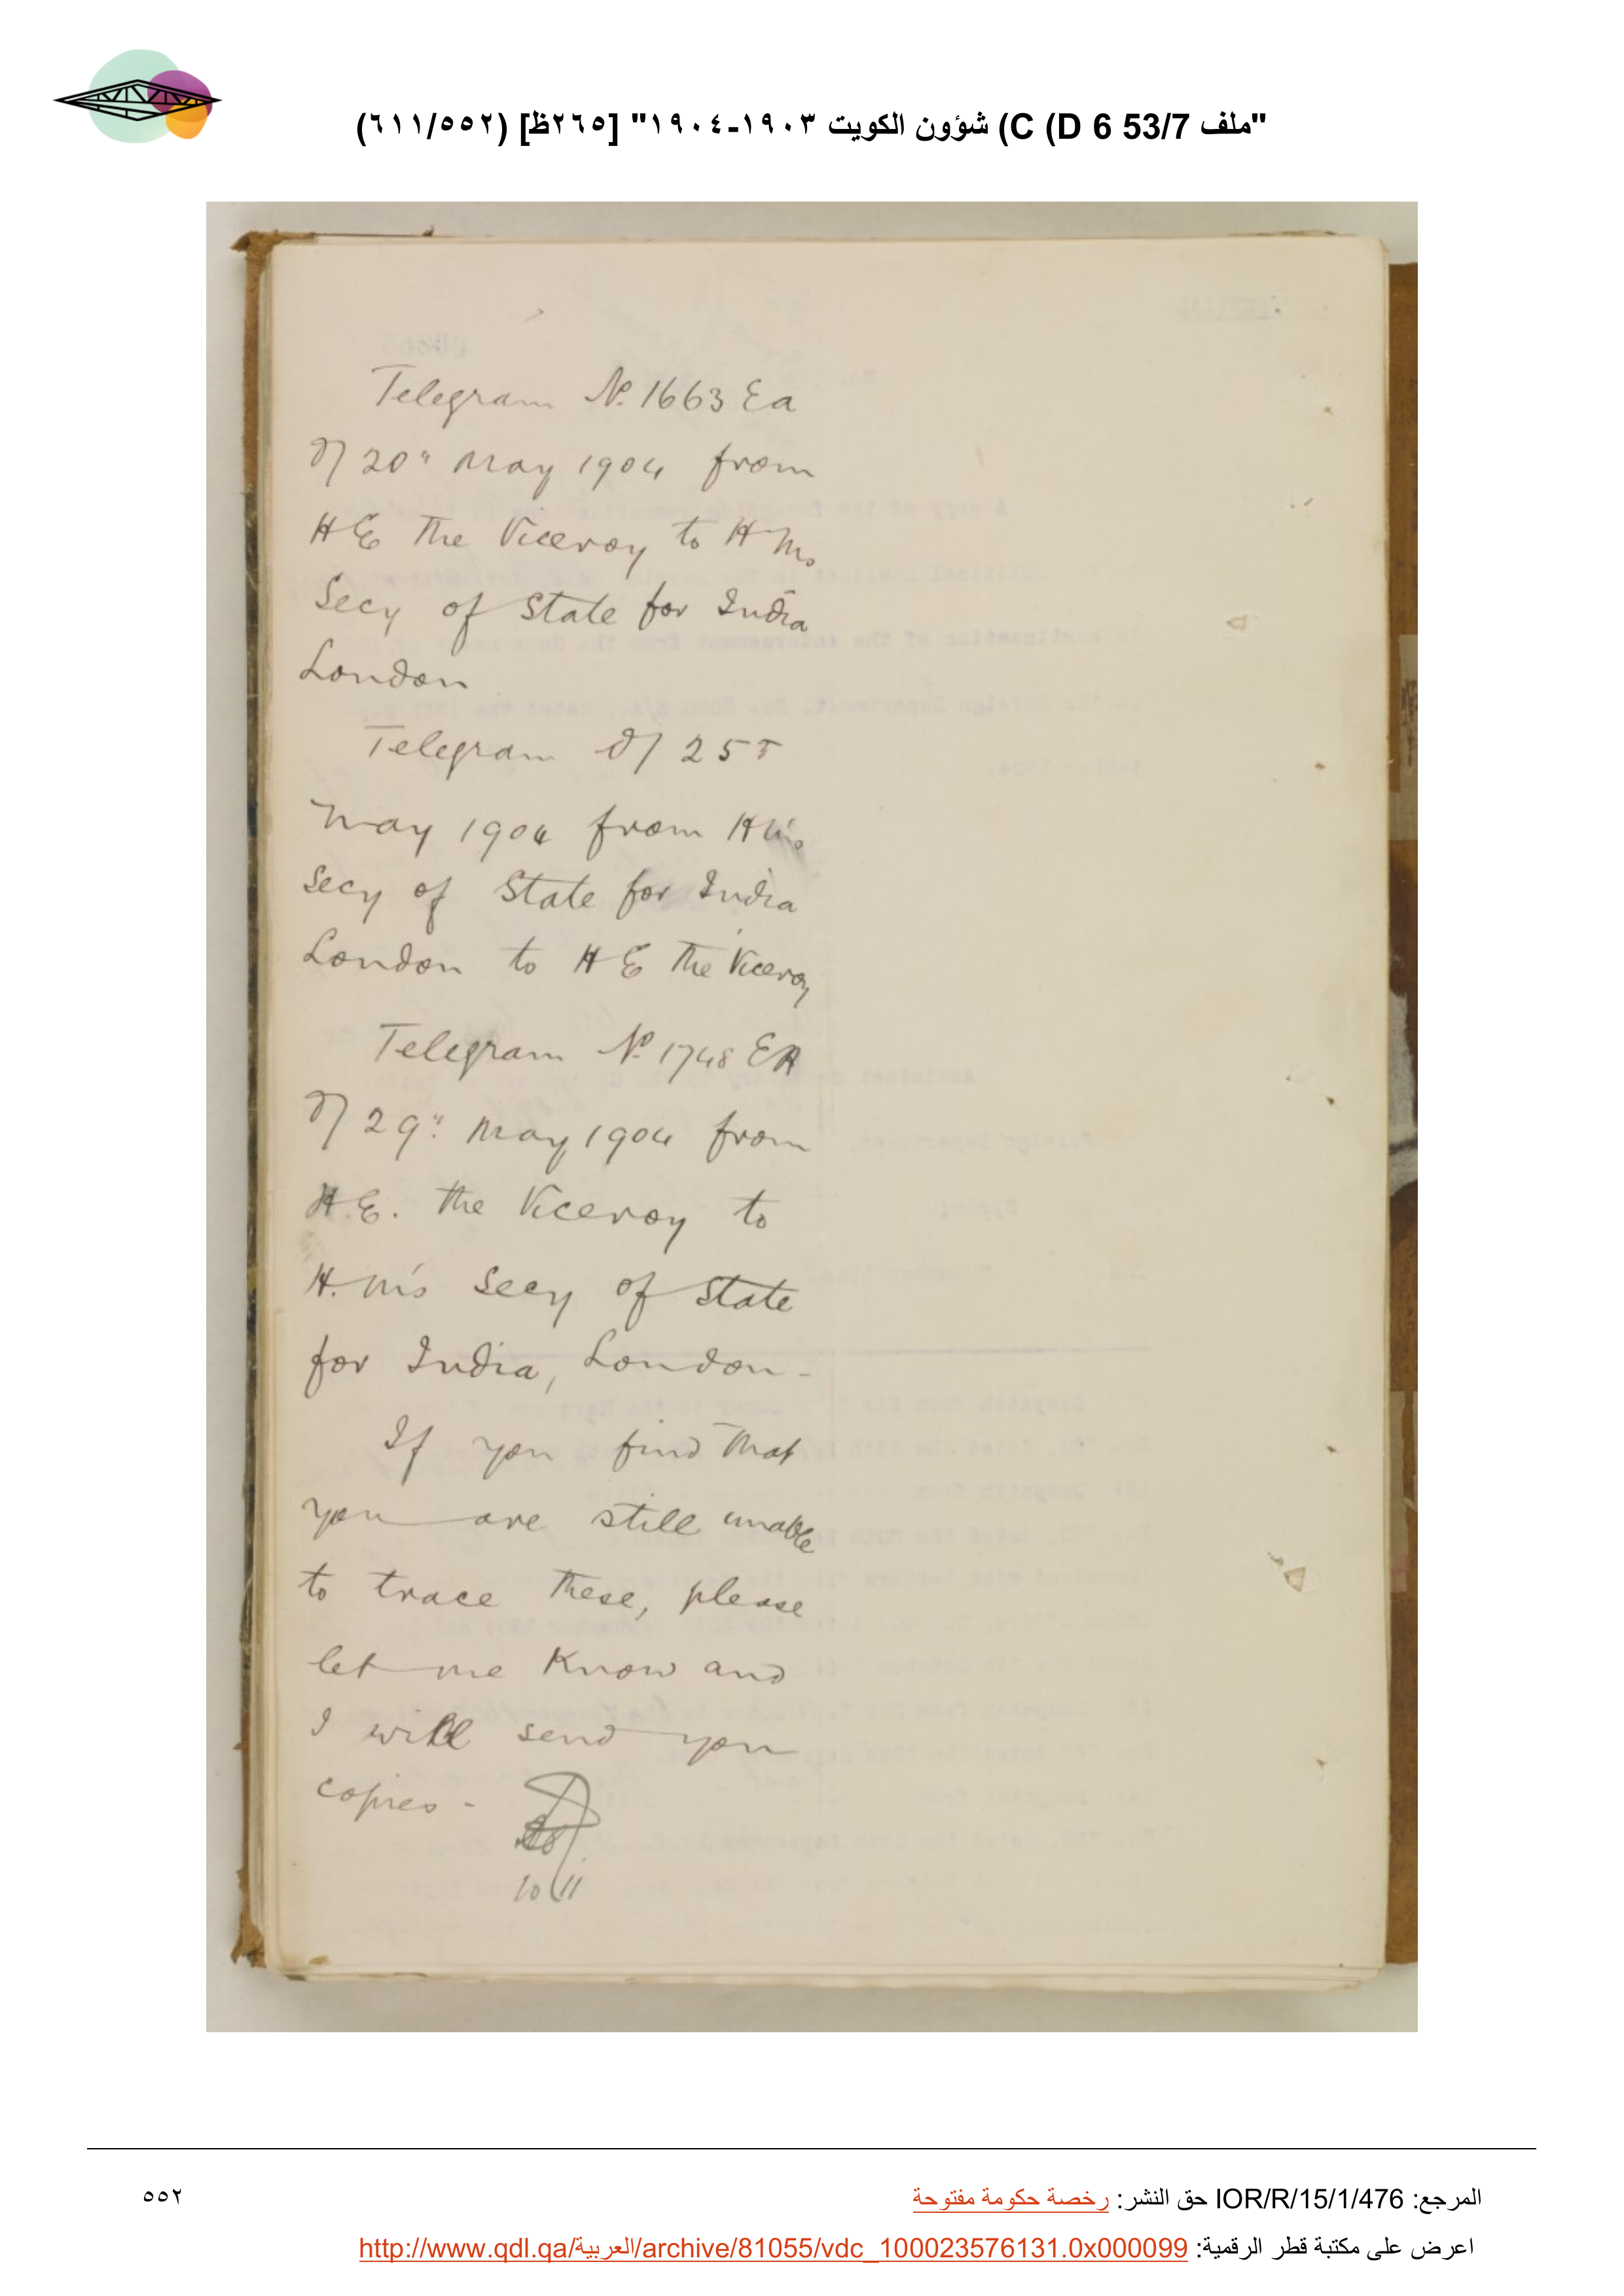 "ملف 53/7 C (D 6) شؤون الكويت ١٩٠٣-١٩٠٤" [٢٦٥ظ] (٦١١/٥٥٢)
Telegram No. 1663 Ea
d/ 20th May 1904 from
H E The Viceroy to H Ms
Secy of State for India
London
Telegram d/ 25th
May 1904 from H M's
Secy of State for India
London to H E The Viceroy
Telegram No. 1748 EA
d/ 29th May 1904 from
H.E. the Viceroy to
H. M's Secy of State
for India, London -
If you find that
you are still unable
to trace these, please
let me know and
I will send you
copies -
10/11
المرجع: IOR/R/15/1/476 حق النشر: رخصة حكومة مفتوحة
٥٥٢
اعرض على مكتبة قطر الرقمية: http://www.qdl.qa/العربية/archive/81055/vdc_100023576131.0x000099